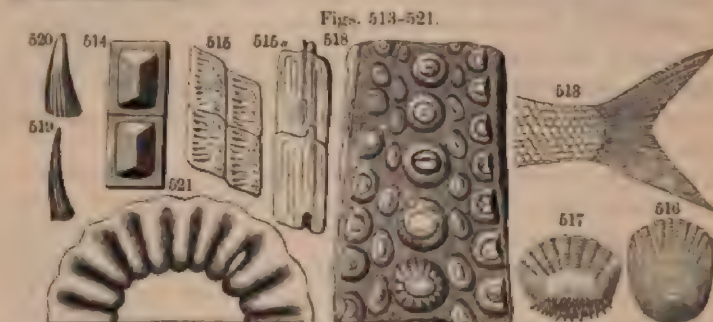 Figs. 513-521.
520
514
515
515a
518
513
519
521
517
516